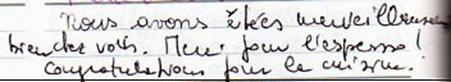 Nous avons étées merveilleusement
bien chez vous. Merci pour l'espresso!
Congratulations pour la cuisine.